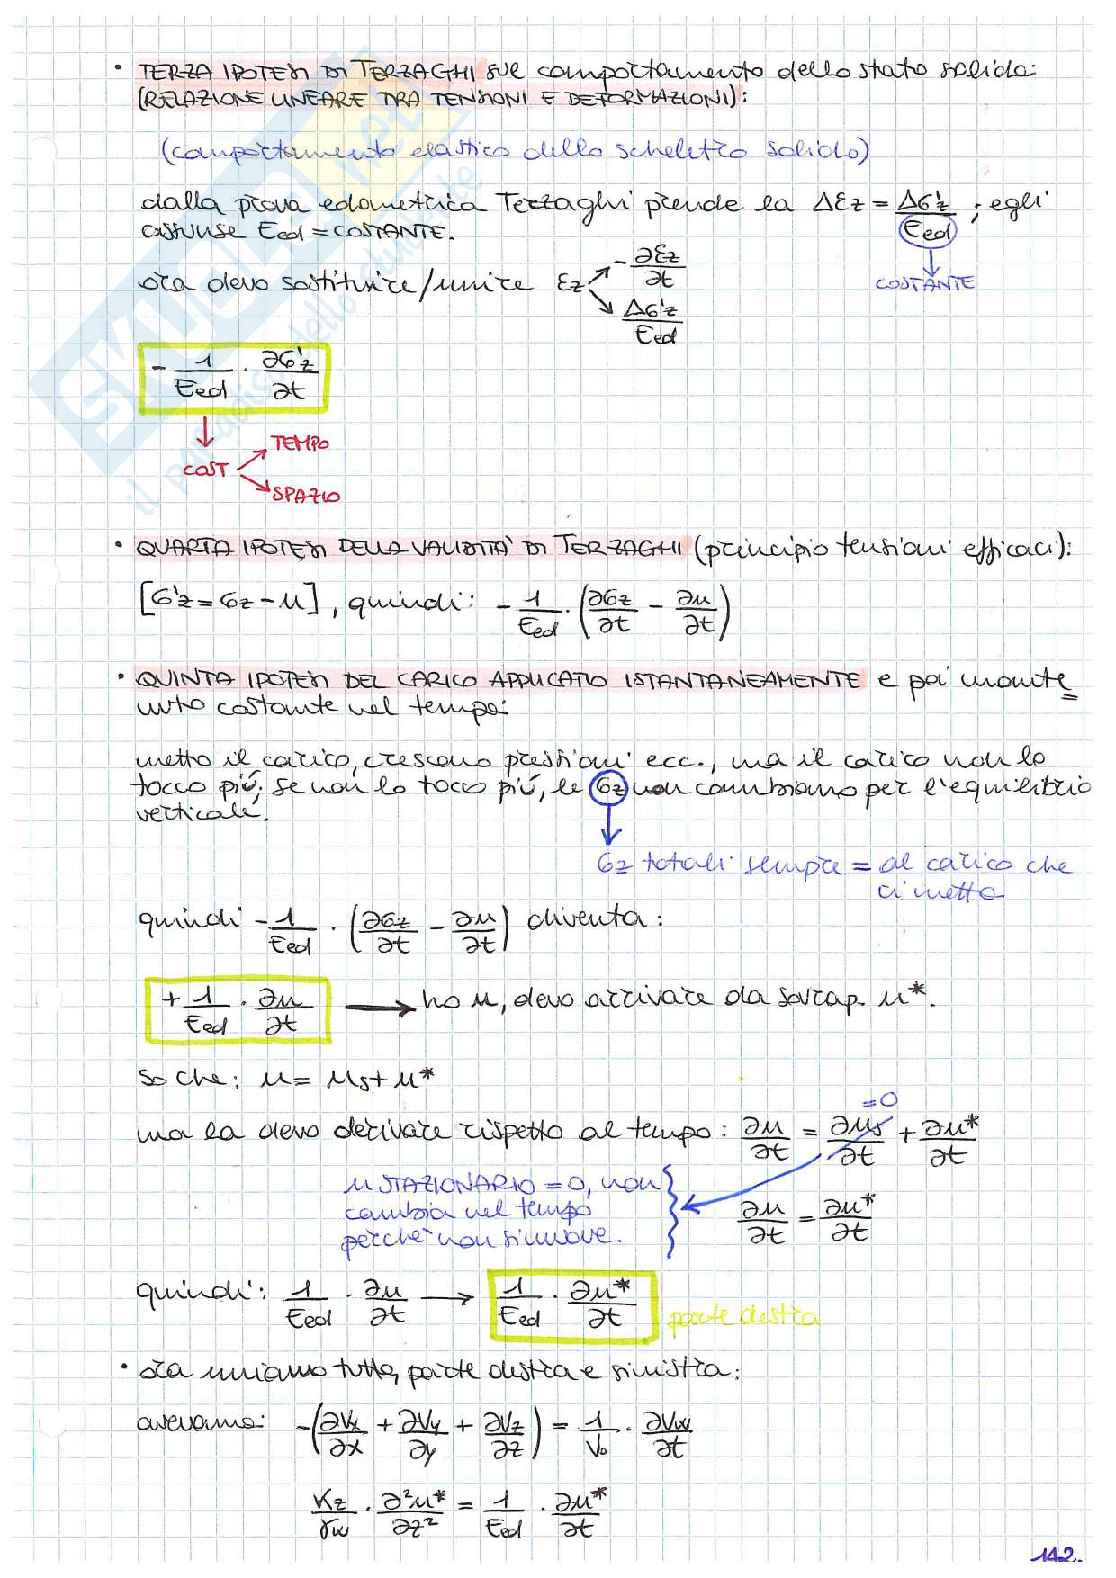 • TERZA IPOTESI DI TERZAGHI sul comportamento dello strato solido:
(RELAZIONE LINEARE TRA TENSIONI E DEFORMAZIONI):
(comportamento elastico dello scheletro solido)
dalla prova edometrica Terzaghi prende la Δεz = Δσ'z / Eed ; egli
assunse Eed = COSTANTE.
COSTANTE
ora devo sostituire/unire εz → -∂εz/∂t
Δσ'z/Eed
- 1/Eed · ∂σ'z/∂t
COST
TEMPO
SPAZIO
• QUARTA IPOTESI DELLA VALIDITÀ DI TERZAGHI (principio tensioni efficaci):
[σ'z = σz - u], quindi: - 1/Eed · (∂σz/∂t - ∂u/∂t)
• QUINTA IPOTESI DEL CARICO APPLICATO ISTANTANEAMENTE e poi mante
nuto costante nel tempo:
metto il carico, crescono pressioni ecc., ma il carico non lo
tocco più; se non lo tocco più, le σz non cambiano per l'equilibrio
verticale.
σz totali sempre = al carico che
ci metto
quindi - 1/Eed · (∂σz/∂t - ∂u/∂t) diventa:
+ 1/Eed · ∂u/∂t → ho u, devo arrivare da sovrap. u*.
so che: u = us + u*
=0
ma la devo derivare rispetto al tempo: ∂u/∂t = ∂us/∂t + ∂u*/∂t
u STAZIONARIO = 0, non
cambia nel tempo
perchè non si muove.
∂u/∂t = ∂u*/∂t
quindi: 1/Eed · ∂u/∂t → 1/Eed · ∂u*/∂t parte destra
• ora uniamo tutto, parte destra e sinistra:
avevamo: -(∂Vx/∂x + ∂Vy/∂y + ∂Vz/∂z) = 1/V₀ · ∂Vw/∂t
Kz/γw · ∂²u*/∂z² = 1/Eed · ∂u*/∂t
142.